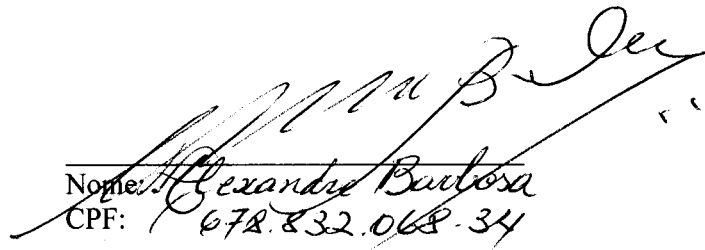 Nome: Alexandre Barbosa
CPF: 678.832.068-34